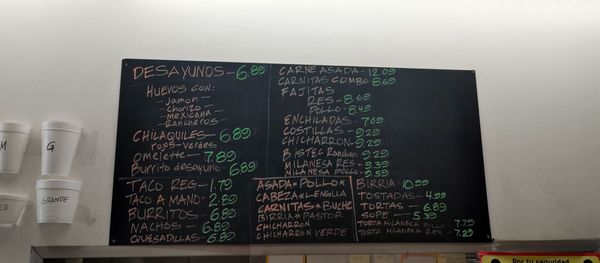 DESAYUNOS - 6.89
HUEVOS CON:
- Jamon -
- Chorizo -
- Mexicana -
- Rancheros -
CHILAQUILES - 6.89
rojos-verdes
Omelette - 7.89
Burrito desayuno 6.89
CARNE ASADA - 12.09
CARNITAS COMBO 8.69
FAJITAS
RES - 8.69
POLLO - 8.49
ENCHILADAS - 7.69
COSTILLAS - 9.29
CHICHARRON - 9.29
BISTEC Ranchero 9.29
MILANESA RES - 9.39
MILANESA POLLO - 9.59
TACO REG - 1.79
TACO A MANO - 2.89
BURRITOS - 6.89
NACHOS - 6.89
QUESADILLAS - 6.89
ASADA * POLLO *
CABEZA * LENGUA
CARNITAS * BUCHE
BIRRIA * PASTOR
CHICHARRON
CHICHARRON VERDE
BIRRIA - 10.99
TOSTADAS - 4.99
TORTAS - 6.89
SOPE - 5.39
TORTA MILANESA POLLO - 7.29
TORTA MILANESA RES - 7.29
M
G
GRANDE
Por tu seguridad